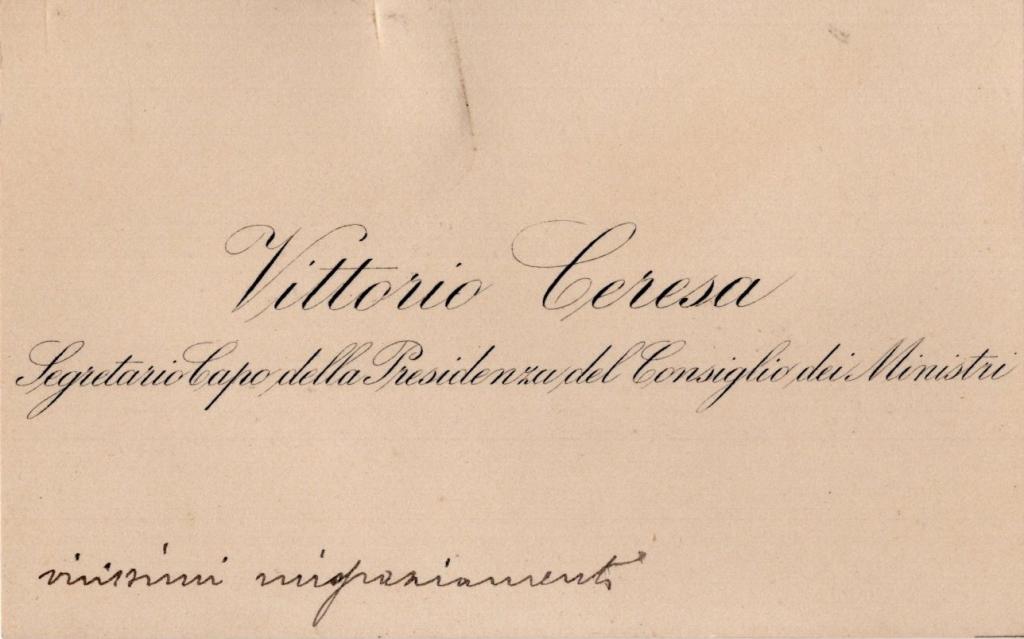 Vittorio Ceresa
Segretario Capo della Presidenza del Consiglio dei Ministri
vivissimi ringraziamenti